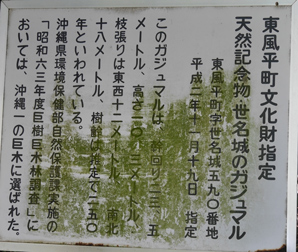 東風平町文化財指定
天然記念物・世名城のガジュマル
東風平町字世名城五九〇番地
平成二年十一月十九日 指定
このガジュマルは、幹回り二三・五
メートル、高さ二〇・三メートル
枝張りは東西十二メートル、南北
十八メートル、樹齢は推定で二五〇
年といわれている。
沖縄県環境保健部自然保護課実施の
「昭和六三年度巨樹巨木林調査」に
おいては、沖縄一の巨木に選ばれた。